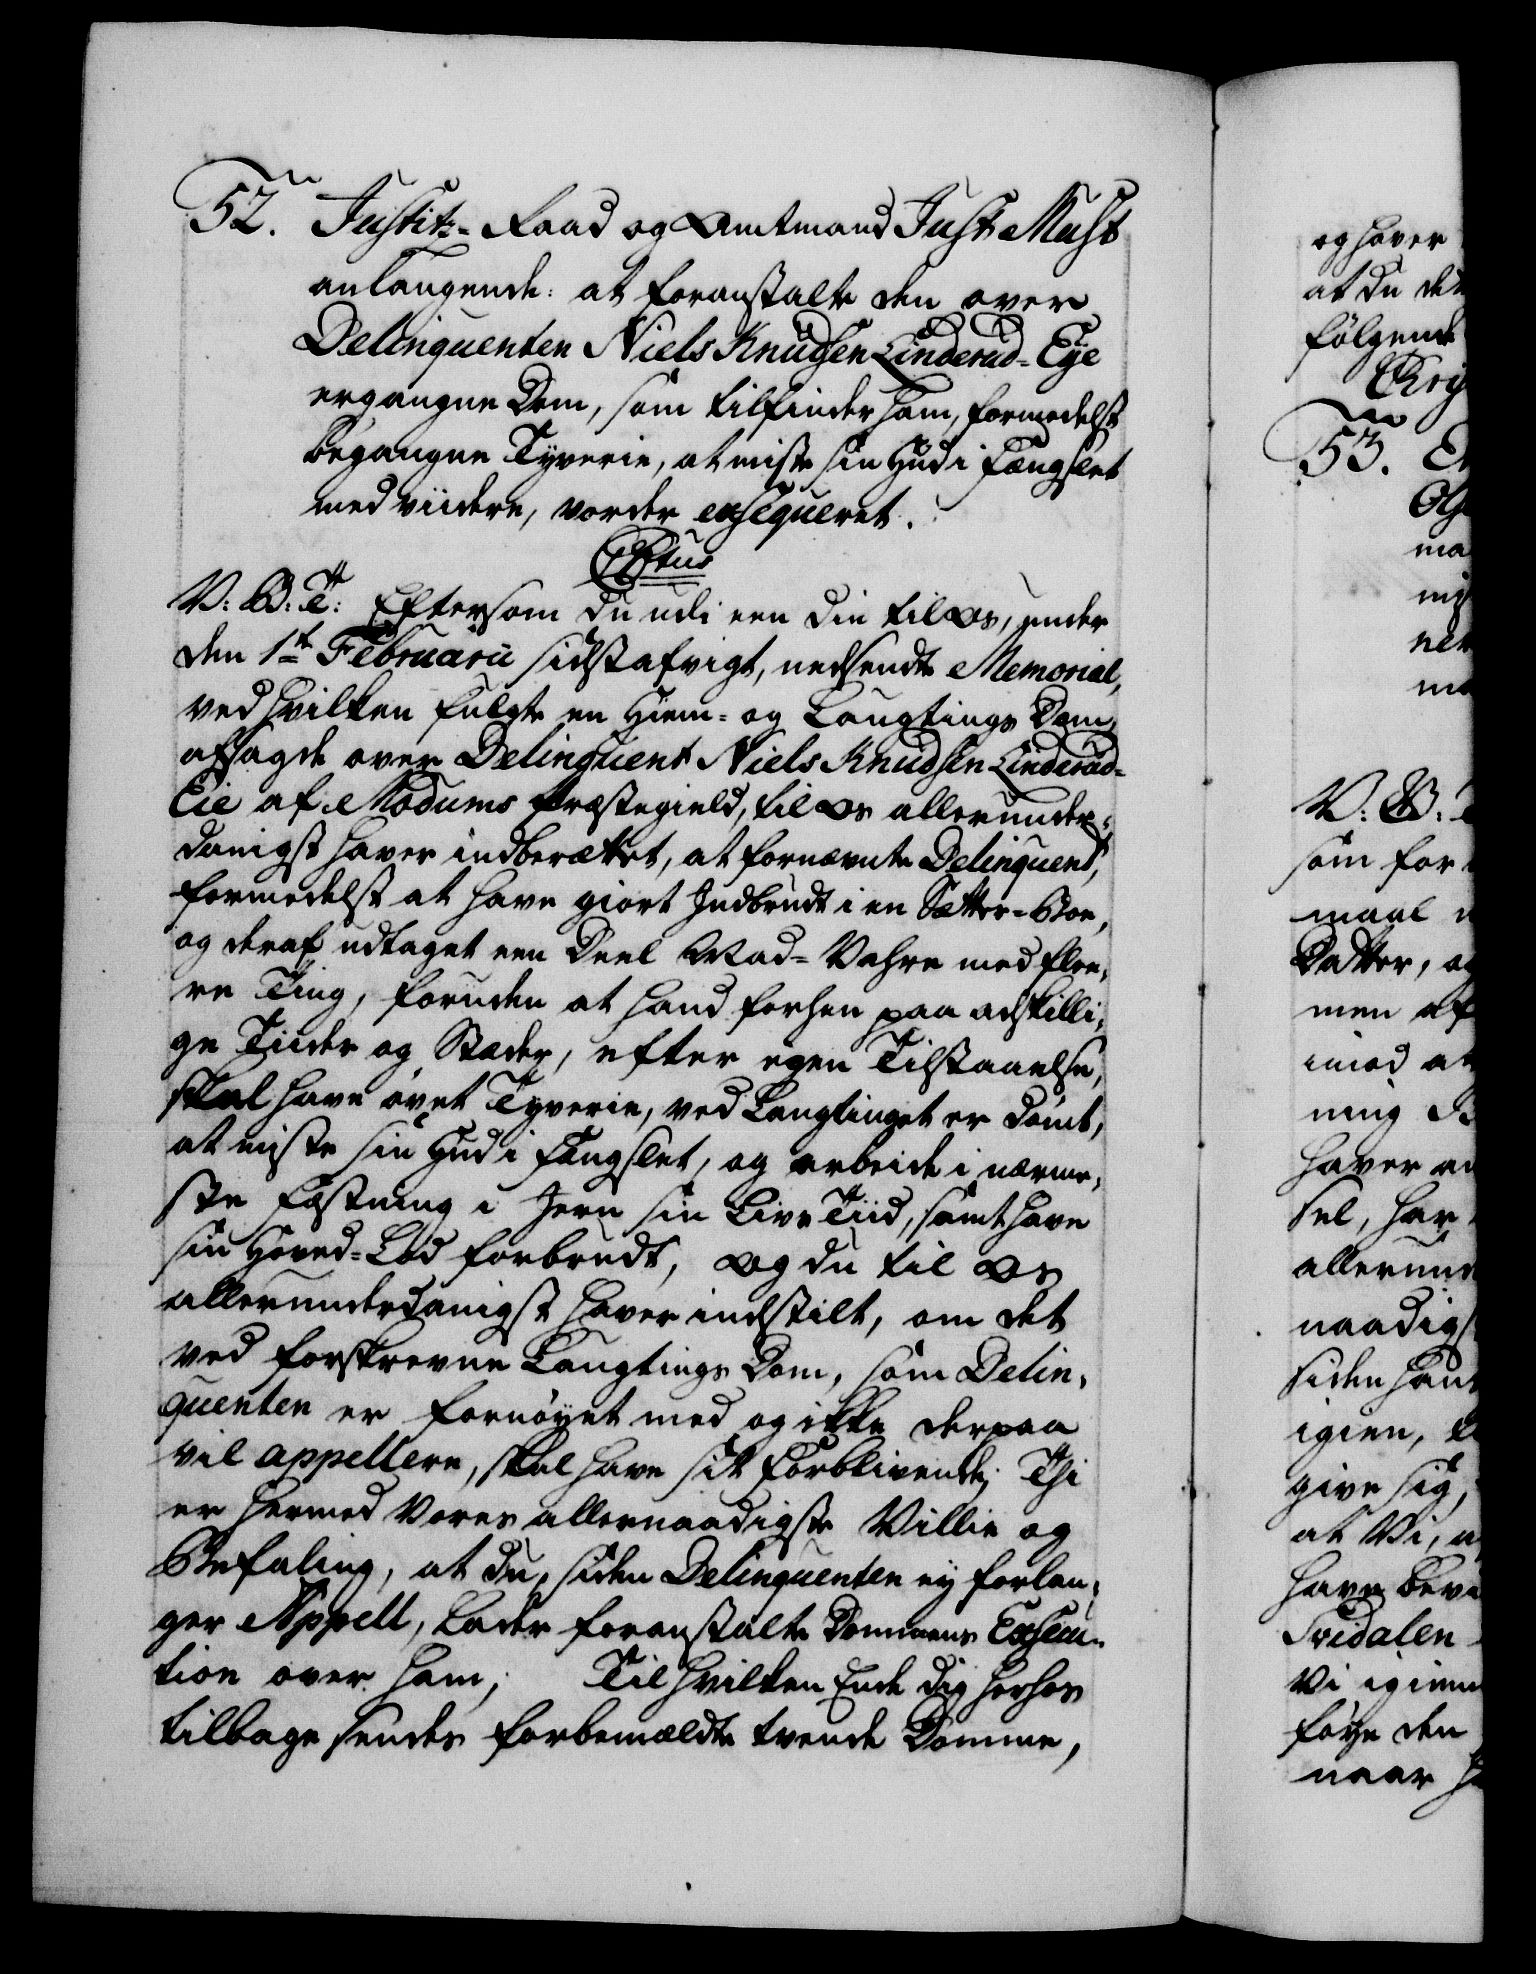 52. Justitz-Raad og Amtmand Just Must
anlangende: at foranstalte den over
Delinquenten Niels Knudsen Linderud-Eye
ergangne Dom, som tilfinder ham, formedelst
begangne Tyverie, at miste sin Hud i Fængslet
med viidere, vorder exseqveret.
CRtus
V: G: T: Eftersom du udi een din til Os, under
den 1te Februarii sidstafvigt, nedsendte Memorial,
ved hvilken fulgte en Hiem- og Laugtings Dom,
afsagde over Delinquent Niels Knudsen Linderud-
Eie af Modums Præstegield, til Os allerunder-
danigst haver indberættet, at fornævnte Delinquent,
formedelst at have giort Indbrudt i en Sætter-Boe,
og deraf udtaget een Deel Mad-Vahre med flee-
re Ting, foruden at hand forhen paa adskilli-
ge Tiider og Stæder, efter egen Tilstaaelse,
skal have øvet Tyverie, ved Laugtinget er dømt,
at miste sin Hud i Fængslet, og arbeide i nærme-
ste Fæstning i Jern sin Livs Tiid, samt have
sin Hoved-Lod forbrudt, Og du til Os
allerunderdanigst haver indstilt, om det
ved forskrevne Laugtings Dom, som Delin-
quenten er fornøyet med og ikke derpaa
vil appellere, skal have sit Forblivende; Thi
er hermed Vores allernaadigste Villie og
Befaling, at du, siden Delinquenten ey forlan-
ger Appell, lader foranstalte Dommens Exsecu-
tion over ham; Til hvilken Ende dig herhos
tilbage sendes forbemældte tvende Domme,
og haver
at du det
følgende
53.
V: G:
som for
maal
Datter, og
men af
imod at
ning
haver
sel, har
allerund
naadigst
siden hand
igien,
give sig,
at Vi,
have
Tvidalen
Vi igien
føye den
naar